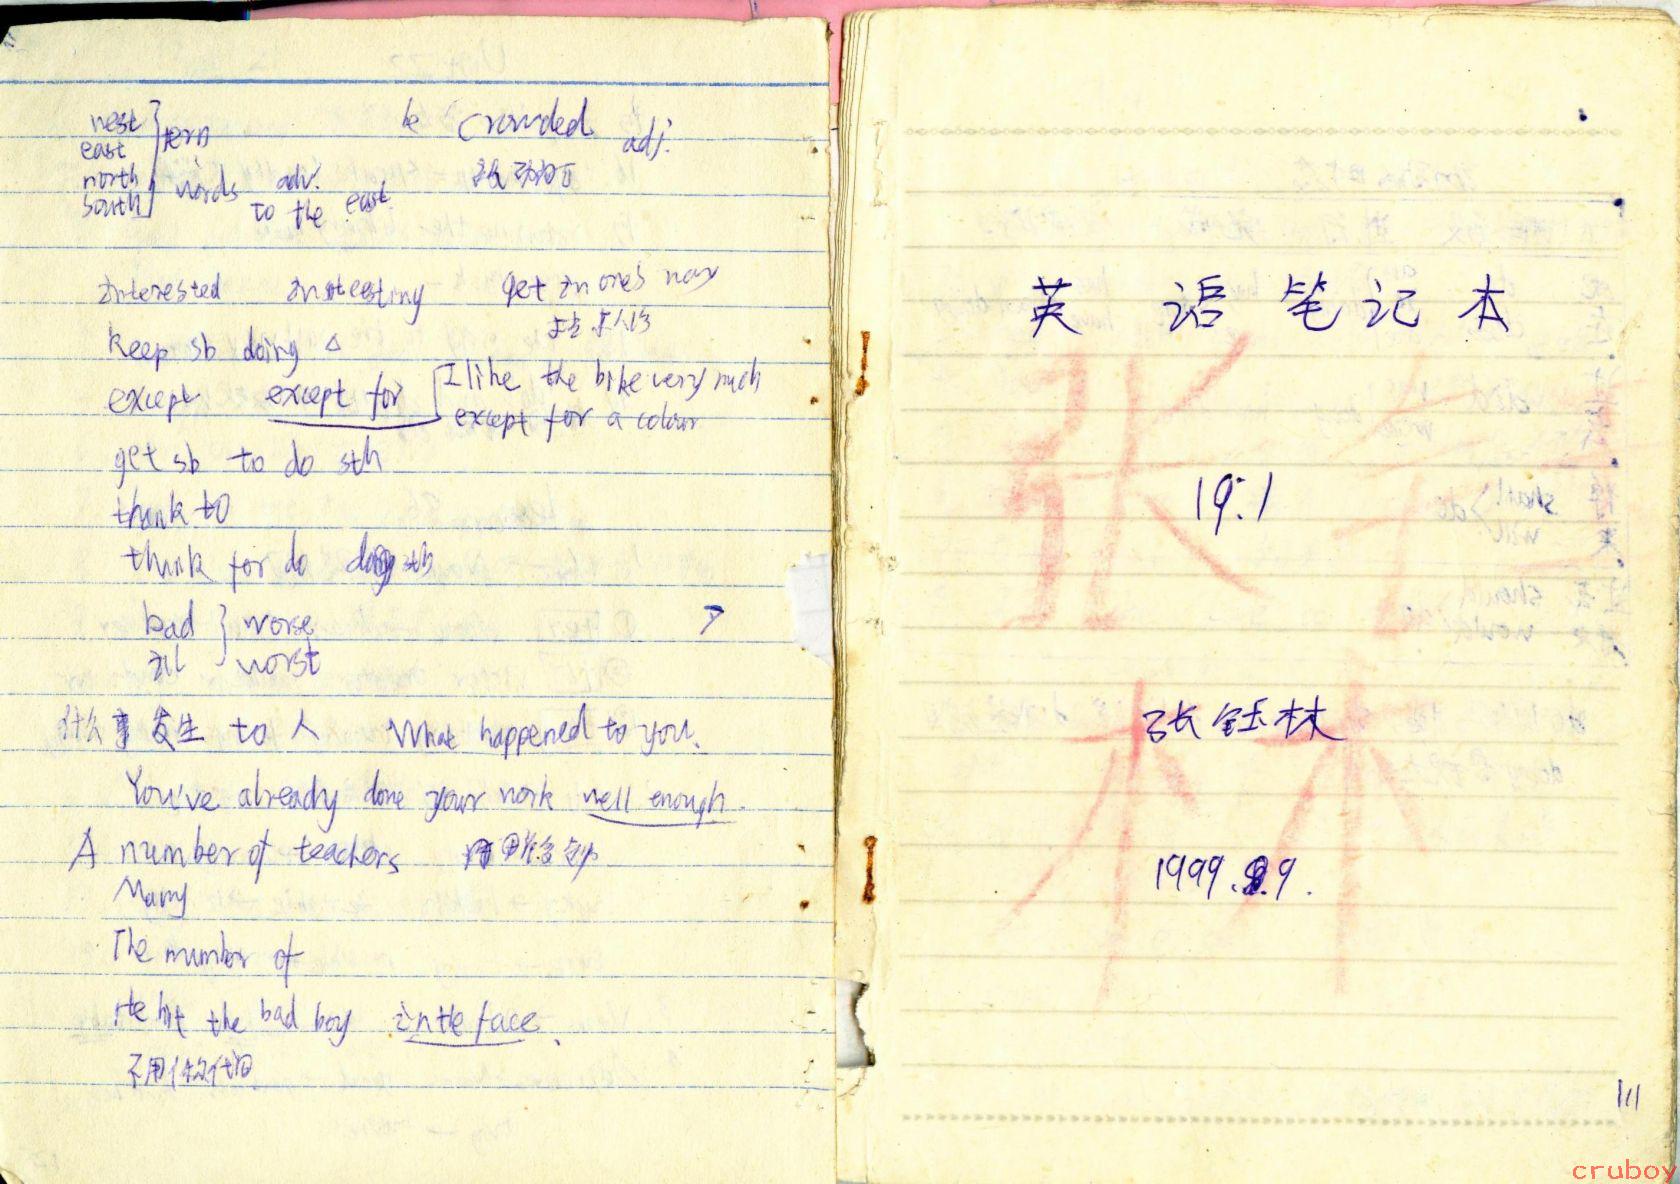 west
east
north
south
tern
wards adv.
to the east
be Crowded adj.
interested insteesting get in one's way
keep sb doing △
except except for I like the bike very much
except for a colour
get sb to do sth
thank to
think for do doing sth
bad worse
ill worst
什么事 发生 to 人 What happened to you.
You've already done your work well enough.
A number of teachers
Many
The number of
He hit the bad boy in the face.
不用物代词
英语笔记本
19:1
张钰林
1999.9.9.
张钰林
111
cruboy